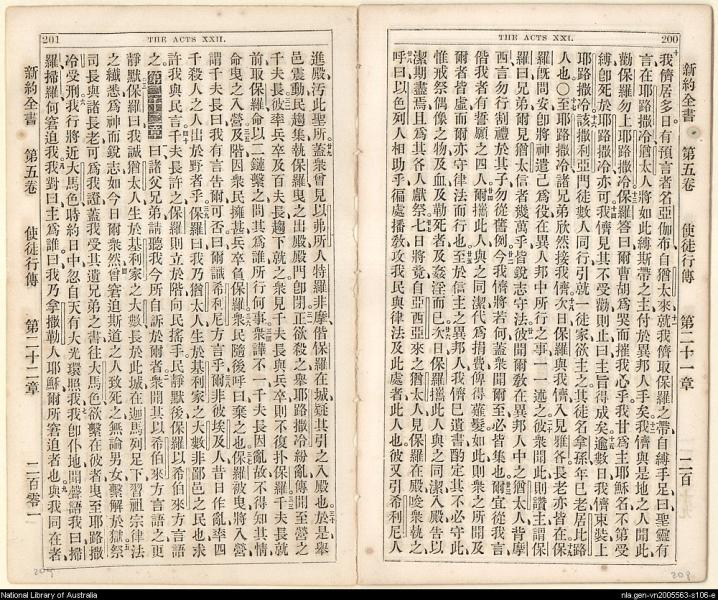 THE ACTS XXI.
200
新約全書 第五卷 使徒行傳 第二十一章 二百
我儕居多日有預言者名亞伽布自猶太來就我儕取保羅之帶自縛手足曰聖靈有
言在耶路撒冷猶太人將如此縛斯帶之主付於異邦人手矣我儕與是地之人聞此
勸保羅勿上耶路撒冷保羅答曰爾曹胡爲哭而摧我心乎我甘爲主耶穌名不第受
縛卽死於耶路撒冷亦可我儕見其不受勸則止曰主旨得成矣逾數日我儕束裝上
耶路撒冷該撒利亞門徒數人同行引就一徒家欲主之其徒名拿孫年已老居比路
人也〇至耶路撒冷諸兄弟欣然接我儕次日保羅與我儕入見雅各長老亦皆在保
羅旣問安卽將神遣己爲役在異人邦中所行之事一一述之彼衆聞此則讚主謂保
羅曰兄弟爾見猶太信者幾萬乎皆銳志守法彼聞爾敎在異邦中之猶太人背摩
西言勿行割禮於其子勿從舊例今我儕將若何蓋衆聞爾至必皆集也爾宜從我言
偕我者有誓願之四人爾攜此人與之同潔代爲捐費俾得薙髮如此則衆之所聞及
爾者皆虛而爾亦守律法而行也至於信主之異邦人我儕已遺書酌定其不必守此
惟戒祭偶像之物及血及勒死者及姦淫而已次日保羅攜此人與之同潔入殿告以
潔期盡焉且爲其各人獻祭七日將竟自亞西亞來之猶太人見保羅在殿唆衆執之
呼曰以色列人相助乎徧處播敎攻我民與律法及此處者此人也彼又引希利尼人
201
THE ACTS XXII.
進殿汚此聖所蓋衆曾見以弗所人特羅非摩偕保羅在城疑其引之入殿也於是舉
邑震動民趨集執保羅曳之出殿殿門卽閉正欲殺之舉耶路撒冷紛亂傳聞至營之
千夫長彼率兵卒及百夫長趨下就之衆見千夫長與兵卒則不復扑保羅千夫長就
前取保羅命以二鏈繫之問其爲誰所行何事衆譁不一千夫長因亂故不得知其情
命曳之入營及階因衆民擁甚兵卒負保羅衆民隨後呼曰棄之也保羅被曳將入營
謂千夫長曰我有言告爾可否曰爾識希利尼方言乎爾非彼埃及人昔日作亂率四
千殺人之人出於野者乎保羅曰我乃猶太人生於基利家之大數非鄙邑之民也求
許我與民言千夫長許之保羅則立於階向民搖手民靜默後保羅以希伯來方言語
之第二十二章曰諸父兄弟請聽我今所自訴於爾者衆聞其以希伯來方言語之更
靜默保羅曰我誠猶太人生於基利家之大數長於此城在迦馬列足下習祖宗律法
之纖悉爲神而銳志如今日爾衆然曾窘迫斯道之人致死之無論男女繫解於獄祭
司長與諸長老可爲我證蓋我受其遺兄弟之書往大馬色欲繫在彼者曳至耶路撒
冷受刑我行將近大馬色時約日中忽自天有大光環照我我卽仆地聞聲語我曰掃
羅掃羅何窘迫我我對曰主爲誰曰我乃拿撒勒人耶穌爾所窘迫者也與我同在者
新約全書 第五卷 使徒行傳 第二十二章 二百零一
National Library of Australia
nla.gen-vn2005563-s106-e